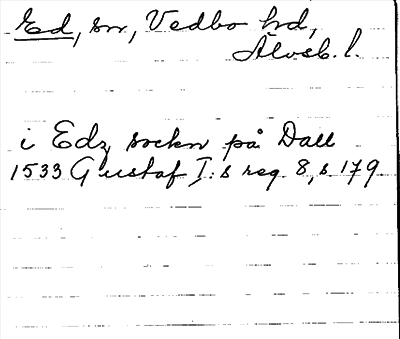 Ed, sn, Vedbo hd,
Älvsb. l.
i Edz sockn på Dall
1533 Gustaf I:s reg 8, s 179